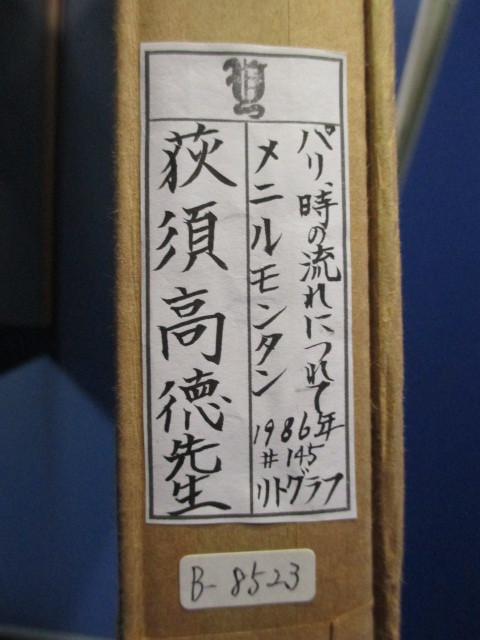 パリ、時の流れにつれて
メニルモンタン
1986年
#145
リトグラフ
荻須高徳先生
B-8523